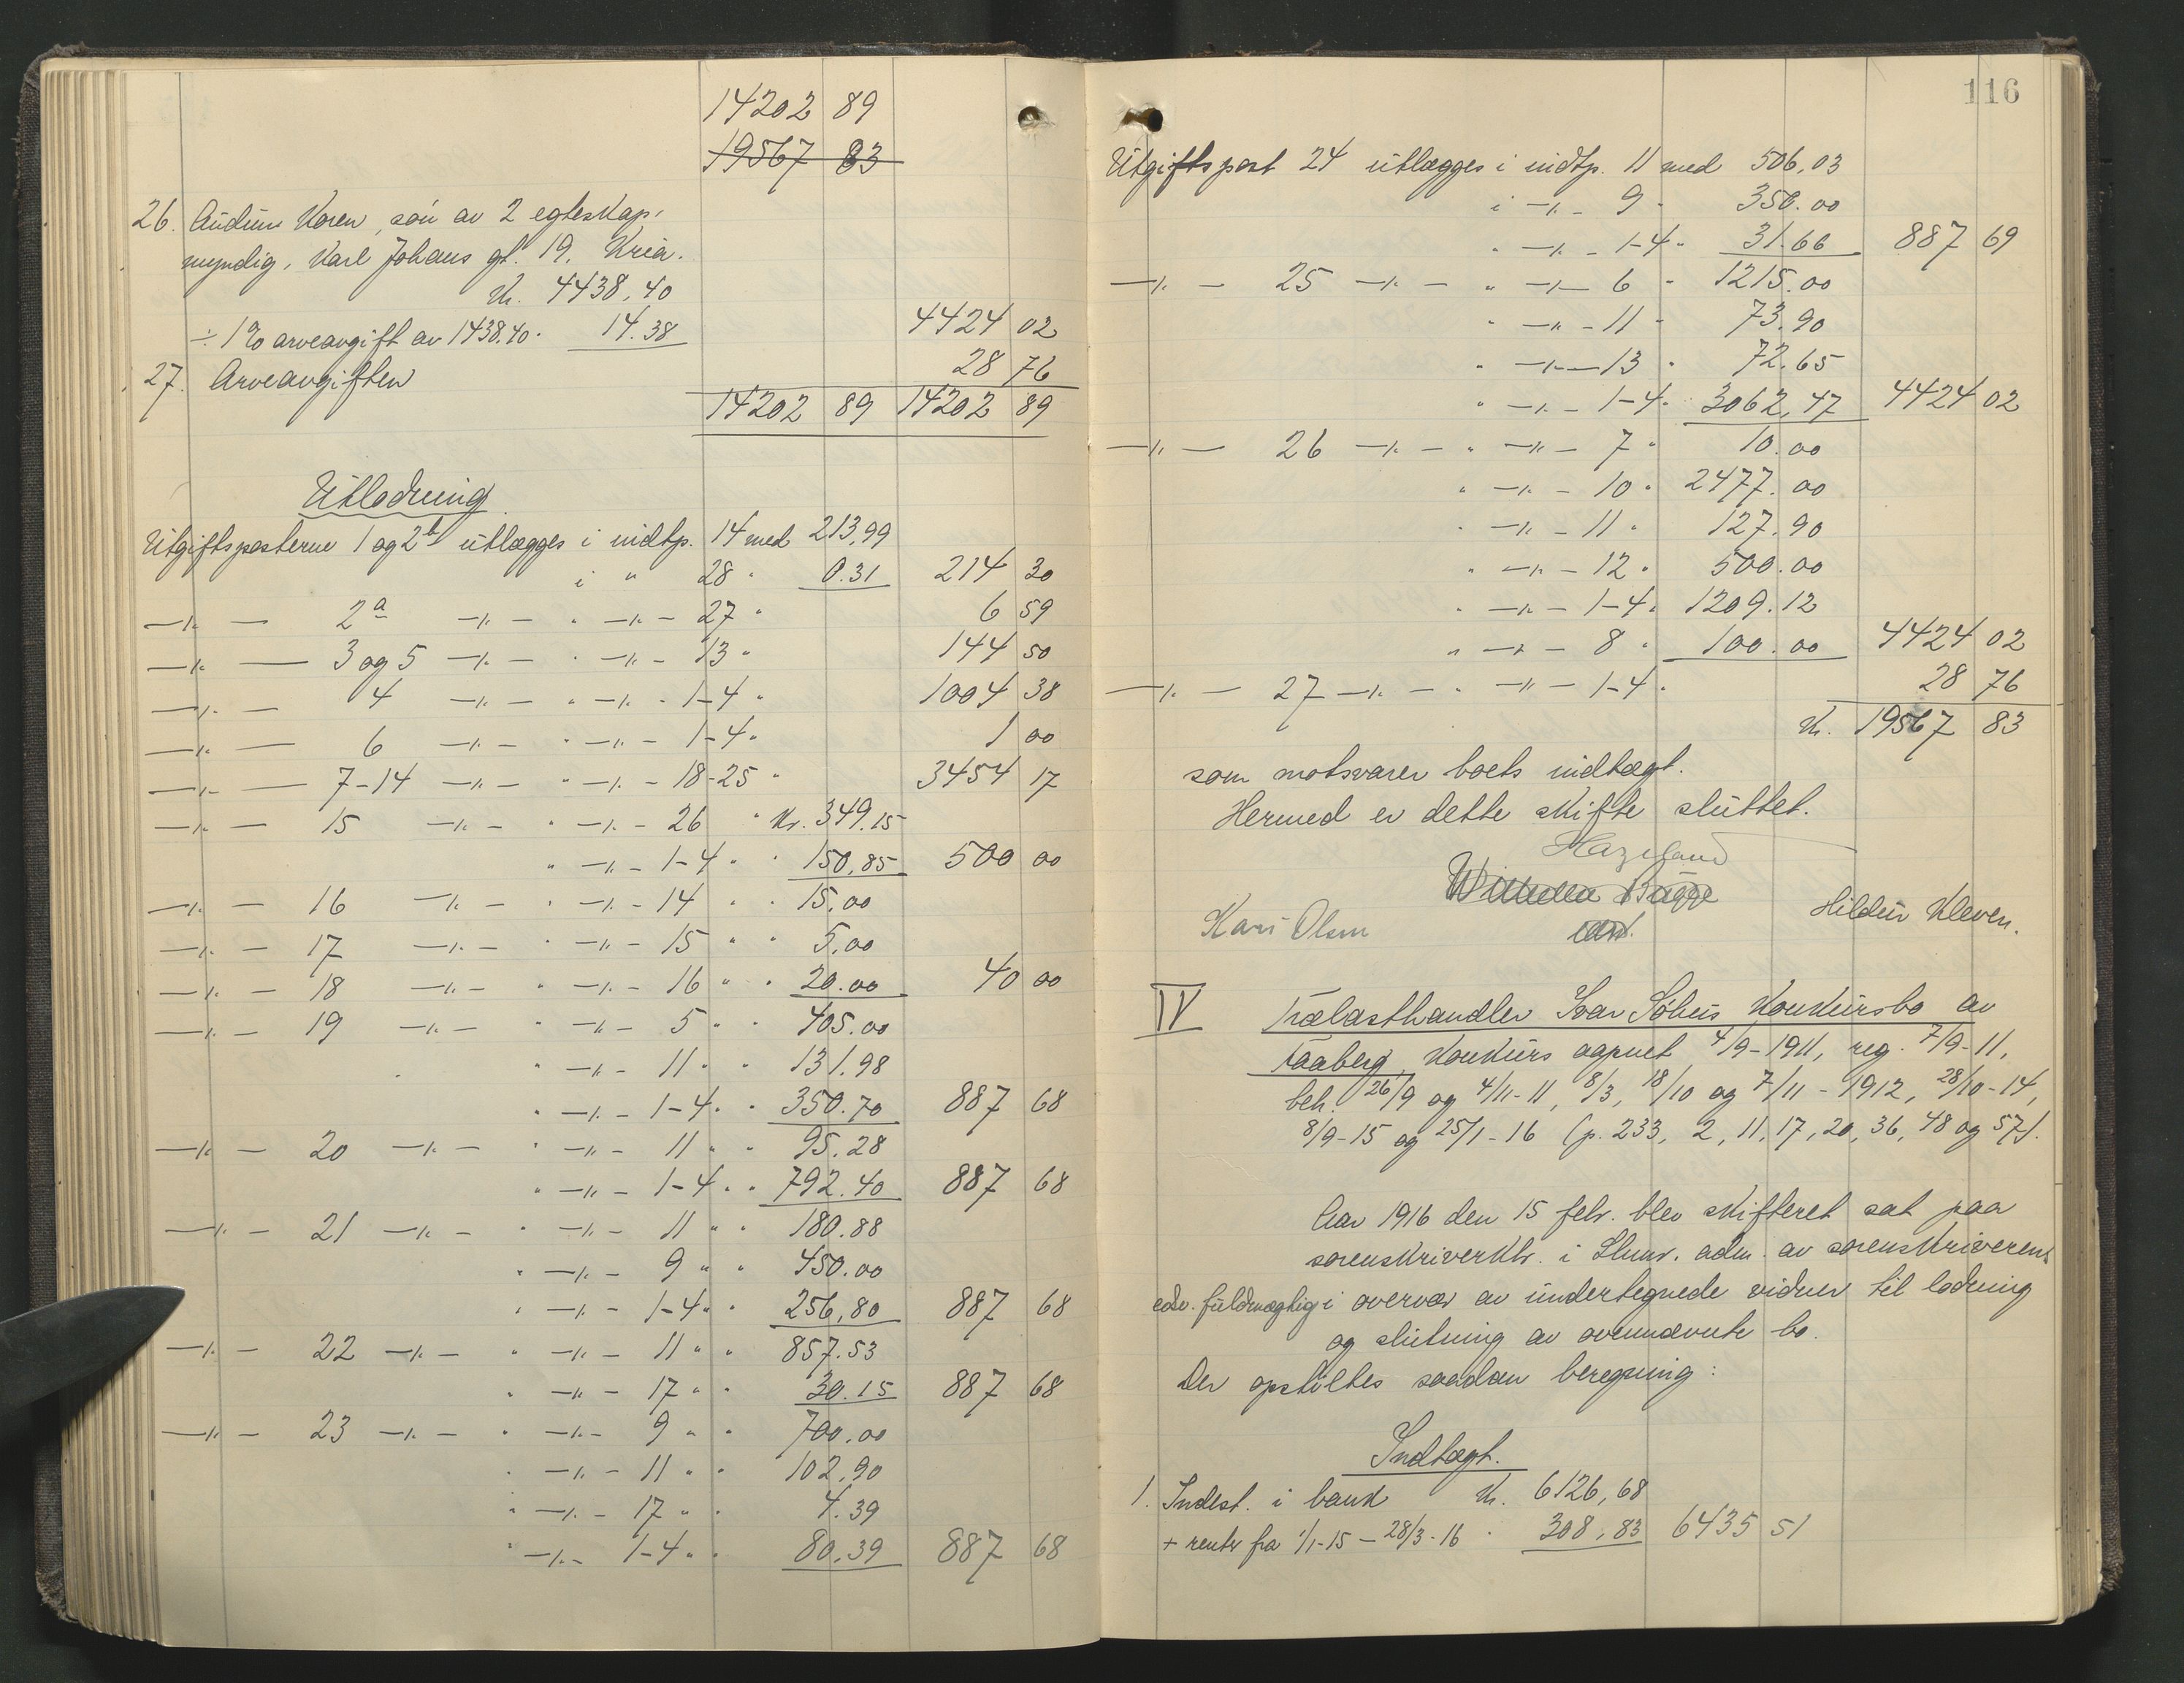 14202 89
19567 83
26. Audun Koren, søn av 2 egteskap,
myndig, Karl Johans gt. 19, Kria.
Kr. 4438,40
÷ 1% arveavgift av 1438.40 · 14.38 4424 02
27. Arveavgiften 28 76
14202 89 14202 89
Utlodning
Utgiftsposterne 1 og 2b utlægges i indtp. 14 med 213,99
i " 28 " 0.31 214 30
—"— 2a —"— " —"— 27 " 6 59
—"— 3 og 5 —"— " —"— 13 " 144 50
—"— 4 —"— " —"— 1-4 " 1004 38
—"— 6 —"— " —"— 1-4 " 1 00
—"— 7-14 —"— " —"— 18-25 " 3454 17
—"— 15 —"— " —"— 26 " Kr. 349.15
" —"— 1-4 " " 150,85 500 00
—"— 16 —"— " —"— 14 " " 15,00
—"— 17 —"— " —"— 15 " " 5,00
—"— 18 —"— " —"— 16 " " 20.00 40 00
—"— 19 —"— " —"— 5 " " 405.00
" —"— 11 " " 131.98
" —"— 1-4 " " 350.70 887 68
—"— 20 —"— " —"— 11 " " 95.28
" —"— 1-4 " " 792.40 887 68
—"— 21 —"— " —"— 11 " " 180.88
" —"— 9 " " 450.00
" —"— 1-4 " " 256,80 887 68
—"— 22 —"— " —"— 11 " " 857.53
" —"— 17 " " 30.15 887 68
—"— 23 —"— " —"— 9 " " 700.00
" —"— 11 " " 102,90
" —"— 17 " " 4.39
" —"— 1-4 " " 80,39 887 68
116
Utgiftspost 24 utlægges i indtp. 11 med 506,03
i —"— 9 " 350.00
" —"— 1-4 " 31.66 887 69
—"— 25 —"— " —"— 6 " 1215.00
" —"— 11 " 73.90
" —"— 13 " 72.65
" —"— 1-4 " 3062,47 4424 02
—"— 26 —"— " —"— 7 " 10.00
" —"— 10 " 2477.00
" —"— 11 " 127.90
" —"— 12 " 500.00
" —"— 1-4 " 1209.12
" —"— 8 " 100.00 4424 02
—"— 27 —"— " —"— 1-4 " 28 76
Kr. 19567 83
som motsvarer boets indtægt.
Hermed er dette skifte sluttet.
Hazeland
Bugge
Kari Olsen Hildur Kleven.
IV Trælasthandler Ivar Søhus konkursbo av
Faaberg, konkurs aapnet 4/9-1911, reg. 7/9-11,
beh. 26/9 og 4/11-11, 8/3, 18/10 og 7/11-1912, 28/10-14,
8/9-15 og 25/1-16 (p. 233, 2, 11, 17, 20, 36, 48 og 57).
Aar 1916 den 15 febr. blev skifteret sat paa
sorenskriverktr. i Lhmr. adm. av sorenskriverens
edsv. fuldmægtig i overvær av undertegnede vidner til lodning
og slutning av ovennævnte bo.
Der opstilles saadan beregning:
Indtægt.
1. Indest. i bank Kr. 6126,68
+ renter fra 1/1-15 — 28/3-16 " 308,83 6435 51